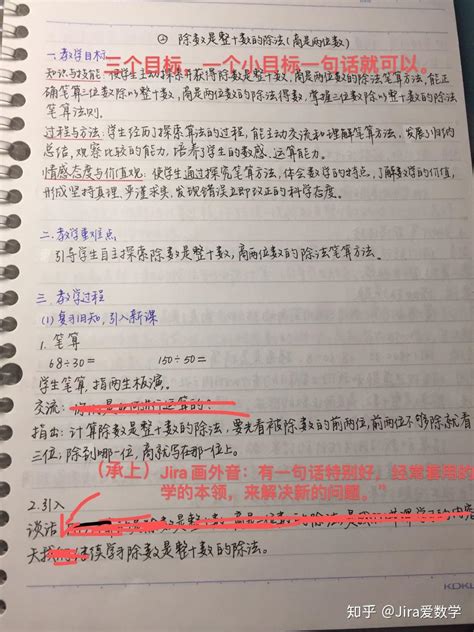 ② 除数是整十数的除法(商是两位数)
一、教学目标
三个目标,一个小目标一句话就可以。
知识与技能:使学生主动探索并获得除数是整十数,商是两位数的除法笔算方法,能正
确笔算三位数除以整十数,商是两位数的除法得数,掌握三位数除以整十数的除法
笔算法则。
过程与方法:学生经历探索算法的过程,能主动交流和理解笔算方法,发展了归纳
总结,观察比较的能力,培养了学生的数感、运算能力。
情感态度与价值观:使学生通过探究笔算方法,体会数学的特点,了解数学的价值,
形成坚持真理、严谨求实、发现错误立即改正的科学态度。
二.教学重难点
引导学生自主探索除数是整十数,商两位数的除法笔算方法。
三 教学过程
(1)复习旧知,引入新课
1. 笔算
68÷30= 150÷50=
学生笔算,指两生板演。
交流:
指出:计算除数是整十数的除法,要先看被除数的前两位,前两位不够除就看
三位,除到哪一位,商就写在那一位上。
(承上)Jira 画外音:有一句话特别好,经常套用的
学的本领,来解决新的问题。”
2.引入
谈话
续学习除数是整十数的除法。
知乎 @Jira爱数学